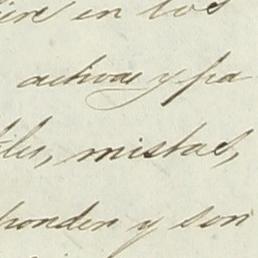 en los
activas y pa
les, mistas,
ponden y son